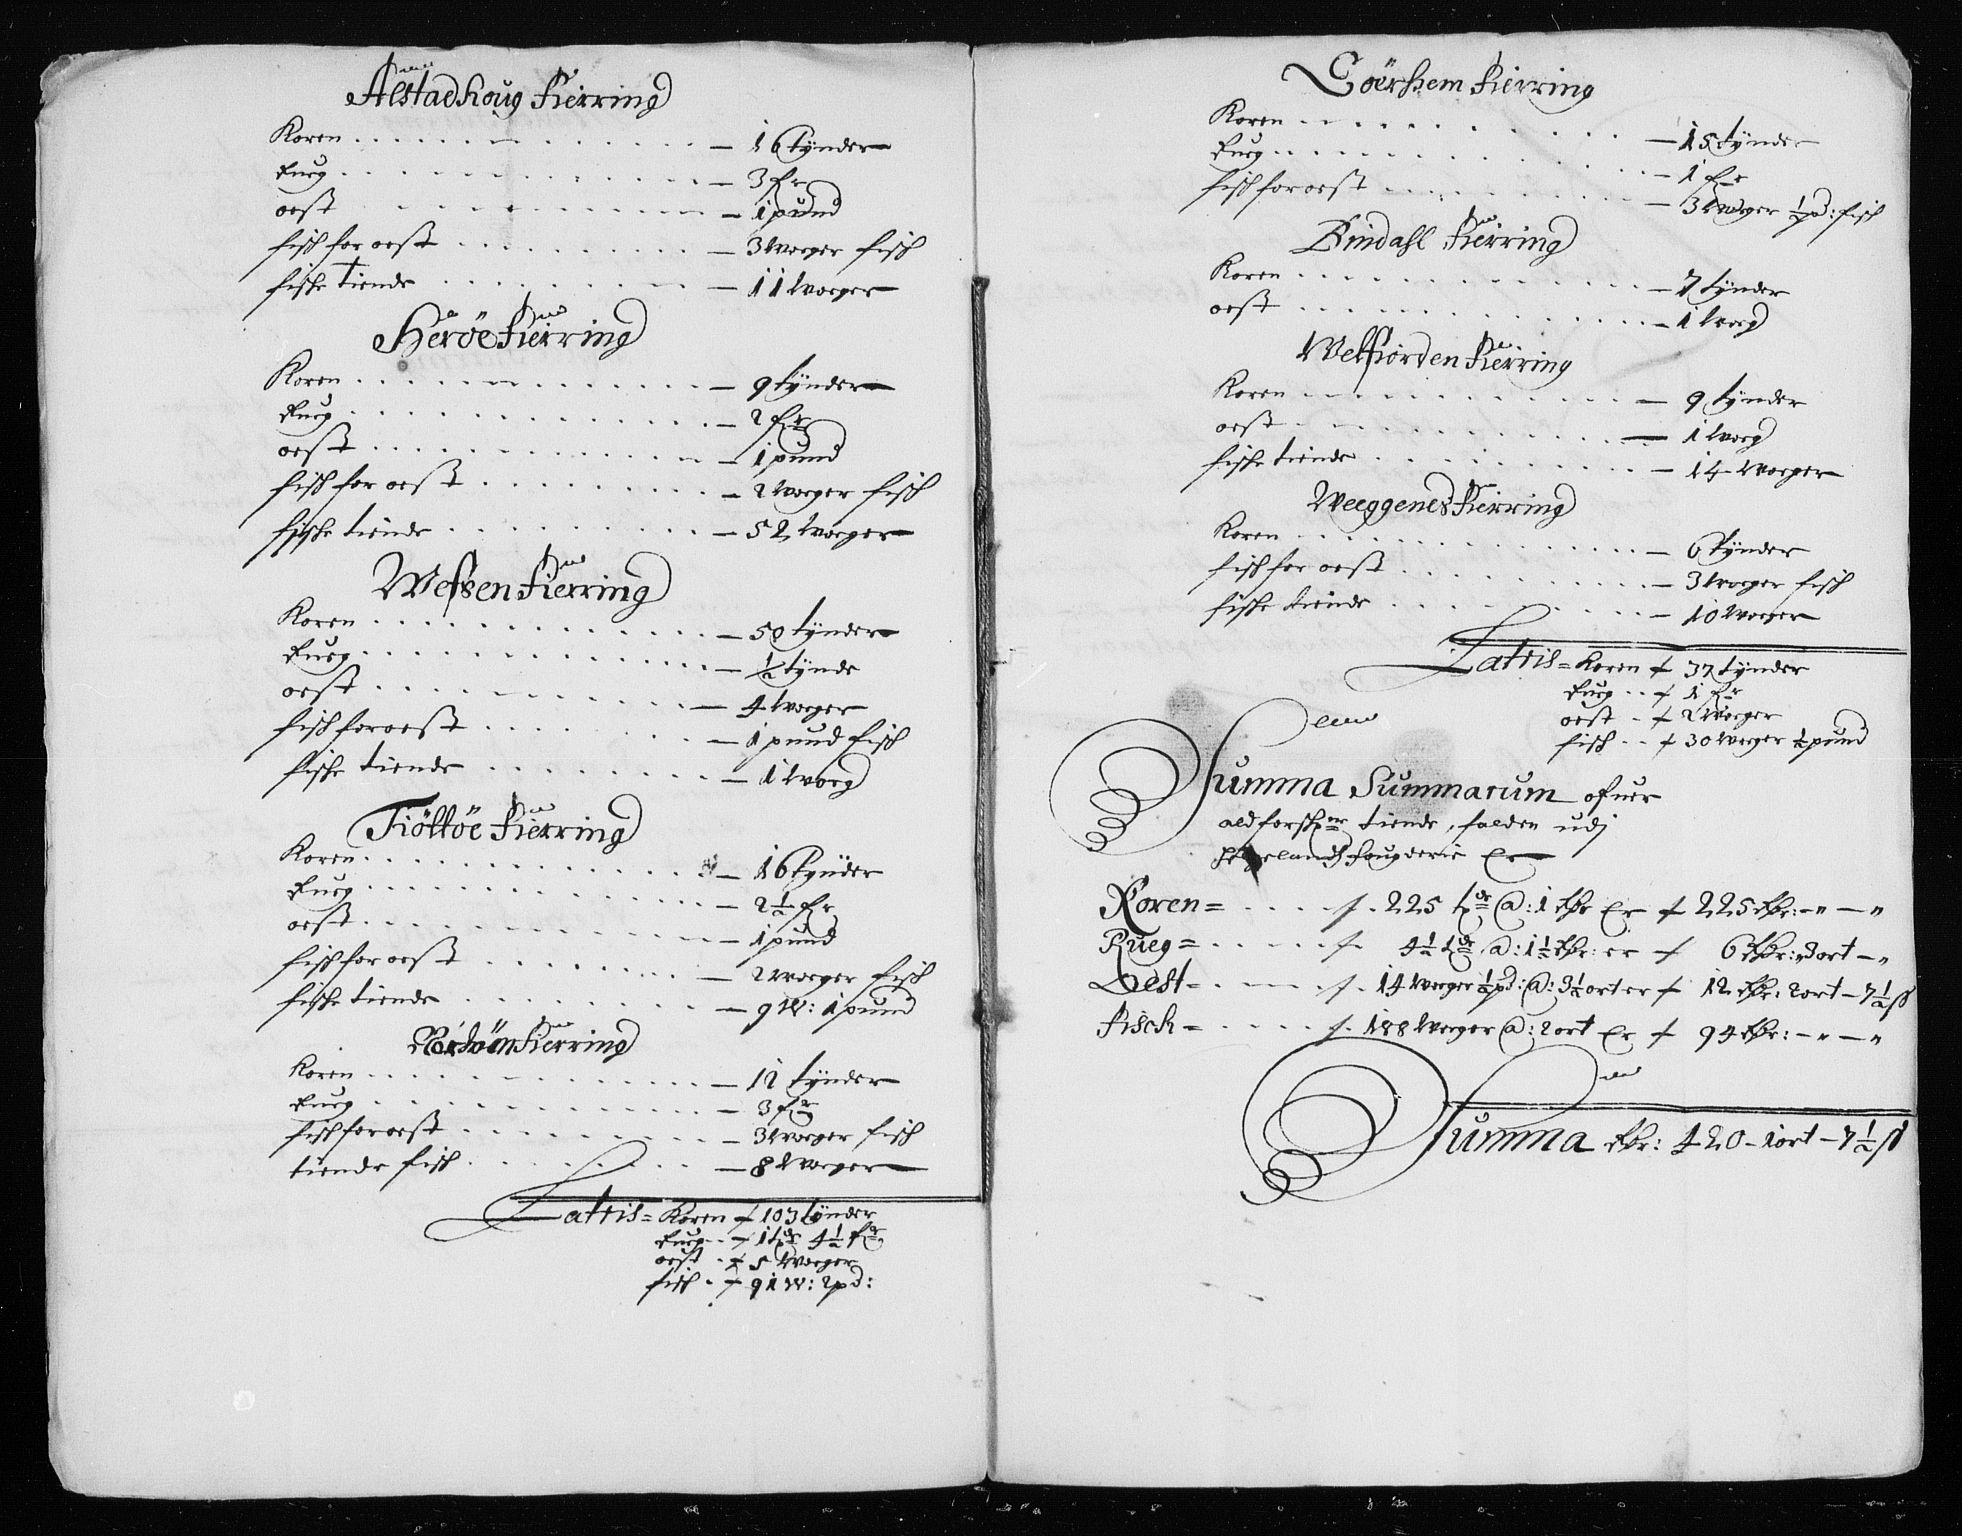 Alstadhoug Fierring
Koren — 16 tÿnder
Rueg — 3 fr
oest — 1 pund
fisch for oest — 3 Woeger fisch
fische tiende — 11 Woeger
Herøe Fierring
Koren — 9 tÿnder
Rueg — 2 fr
oest — 1 pund
fisch for oest — 2 Woeger fisch
fische tiende — 52 Woeger
Wefsen Fierring
Koren — 50 tÿnder
Rueg — ½ tÿnde
oest — 4 Woeger
fisch for oest — 1 pund fisch
fische tiende — 1 Woeg
Tiöttöe Fierring
Koren — 16 tÿnder
Rueg — 2½ fr
oest — 1 pund
fisch for oest — 2 Woeger fisch
fische tiende — 9 W: 1 pund
Fierring
Koren — 12 tÿnder
Rueg — 3 fr
fisch for oest — 3 Woeger fisch
tiende fisch — 8 Woeger
Latris = Koren 103 tÿnder
Rueg 1 tde 4½ fr
oest 5 Woeger
fisch 91 W: 2 pd:
Soërhem Fierring
Koren — 15 tÿnder
Rueg — 1 fr
fisch for oest — 3 Woeger ½ pd: fisch
Bindahl Fierring
Koren — 7 tÿnder
oest — 1 Woeg
Welfiorden Fierring
Koren — 9 tÿnder
oest — 1 Woeg
fische tiende — 14 Woeger
Weeggenes Fierring
Koren — 6 tÿnder
fisch for oest — 3 Woeger fisch
fische tiende — 10 Woeger
Latris = Koren 37 tÿnder
Rueg 1 fr
oest 2 Woeger
fisch 30 Woeger ½ pund
Summa Summarum ofuer
ald forschne tiende, falden udj
Helgelands fougderie Er
Koren = 225 tde @: 1 Rdr Er 225 Rdr: — " — "
Rueg = 4½ tde @: 1½ Rdr: er 6 Rdr: 3 ort — "
Oest = 14 Woeger ½ pd: @: 3½ ort er 12 Rdr: 2 ort — 7½ ß
Fisch = 188 Woeger @: 2 ort Er 94 Rdr: — " — "
Summa Rdr: 420 — 1 ort — 7½ ß